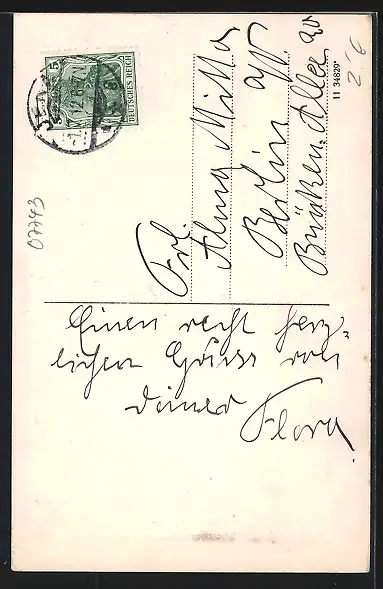 Einen recht herz-
lichen Gruss von
deiner
Flora
Frl.
Alma
Berlin
Brücken Allee 20
11 34829
DEUTSCHES REICH
5
07743
2.6